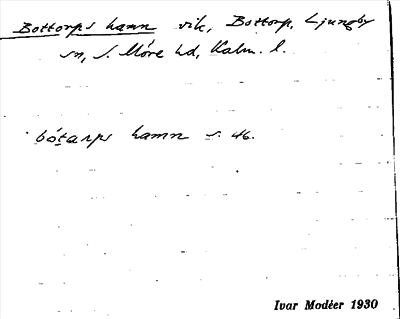 Bottorps hamn vik, Bottorp, Ljungby
sn, S. Möre hd, Kalm. l.
bótarps hamn s. 46.
Ivar Modéer 1930